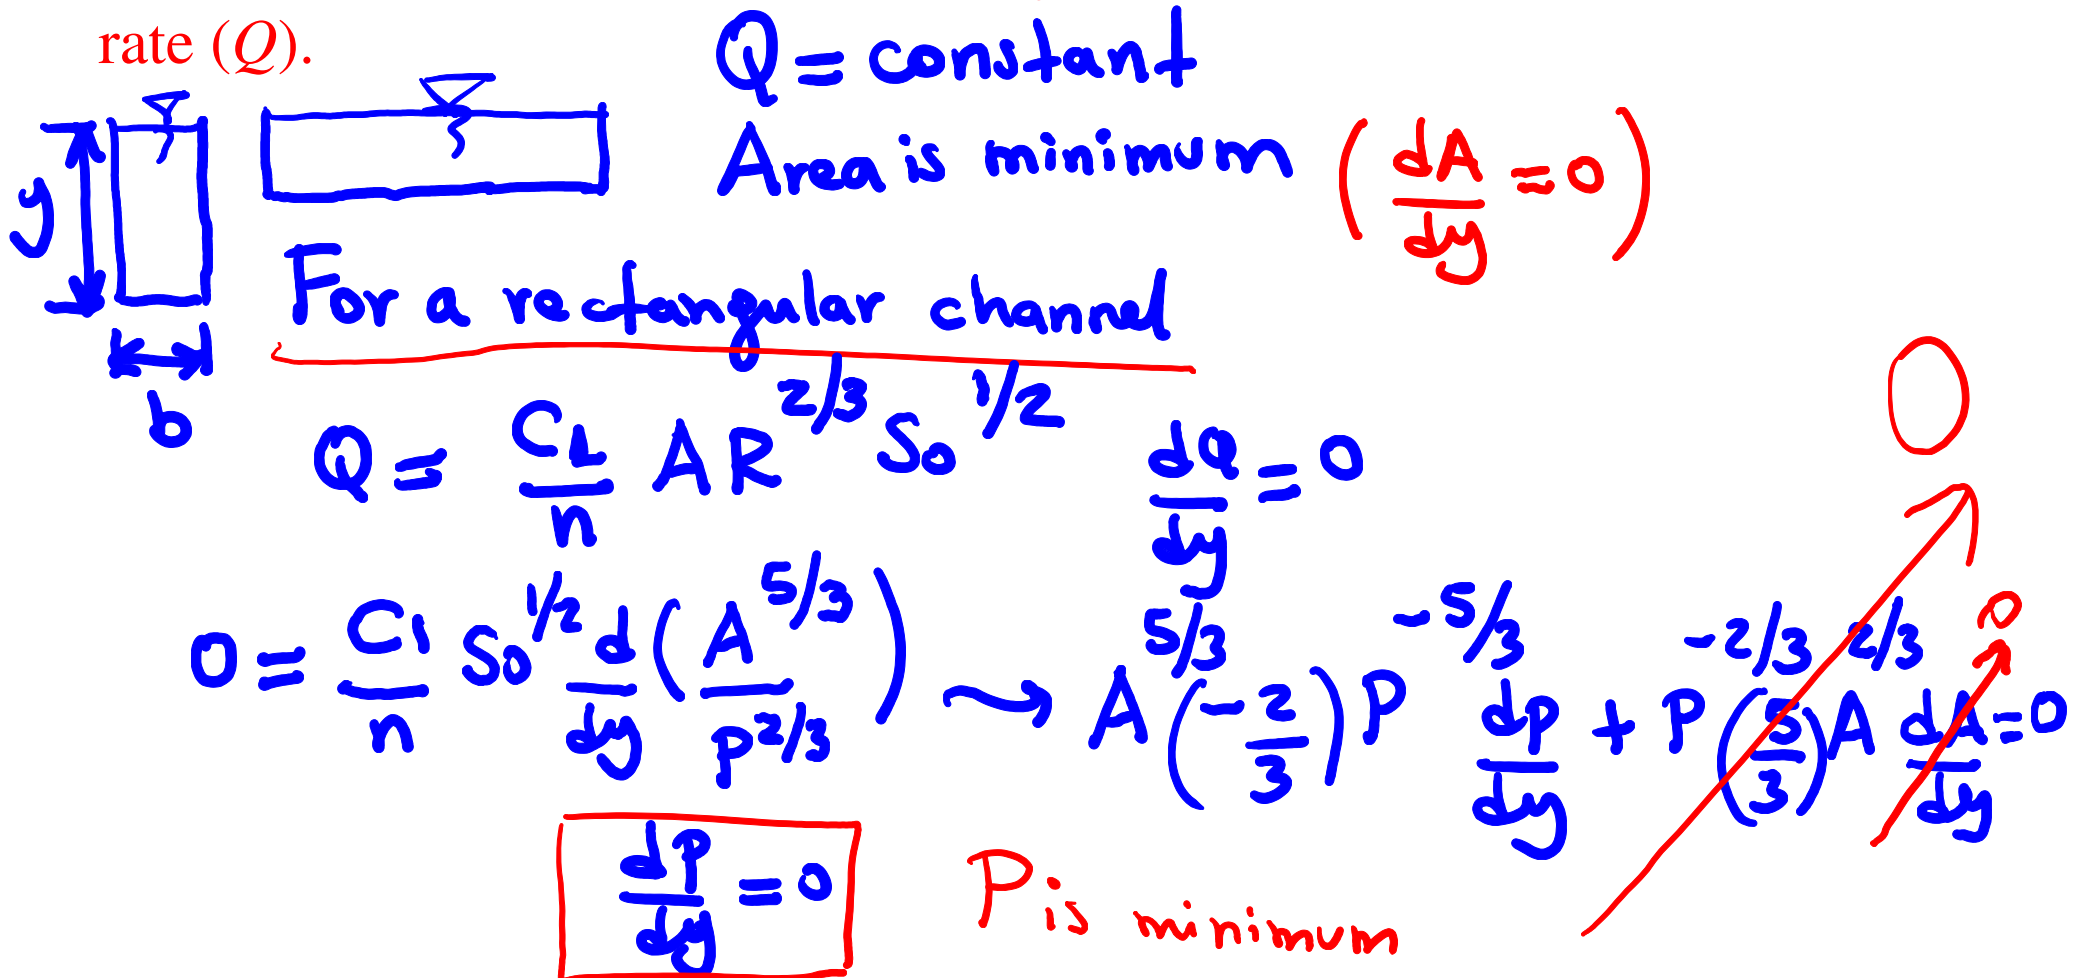 rate (Q).
Q = constant
Area is minimum (dA/dy = 0)
y
b
For a rectangular channel
Q = C1/n A R^2/3 So^1/2 dQ/dy = 0
0
0 = C1/n So^1/2 d/dy (A^5/3 / P^2/3) → A^5/3 (-2/3) P^-5/3 dP/dy + P^-2/3 (5/3) A^2/3 dA/dy = 0
0
dP/dy = 0 P is minimum